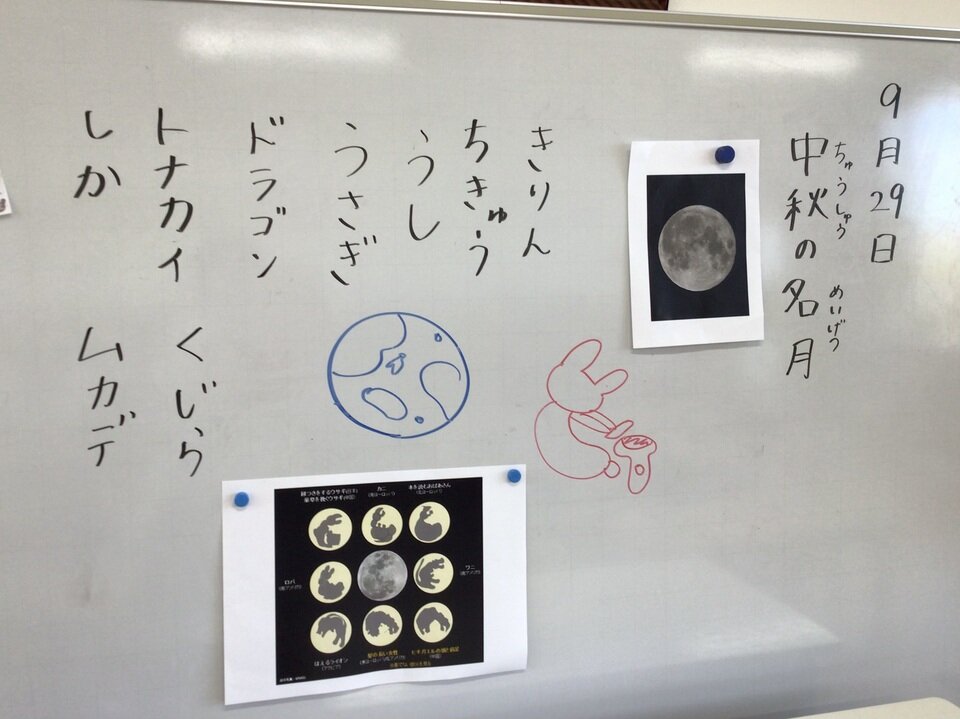 9月29日
ちゅうしゅう めいげつ
中秋の名月
きりん
ちきゅう
うし
うさぎ
ドラゴン
トナカイ
しか
くじら
ムカデ
餅つきをするウサギ(日本)
カニ
(南ヨーロッパ)
本を読むおばあさん
ロバ
(南アメリカ)
ワニ
ほえるライオン
(アラビア)
髪の長い女性
ヒキガエルの頭と前足
(中国)